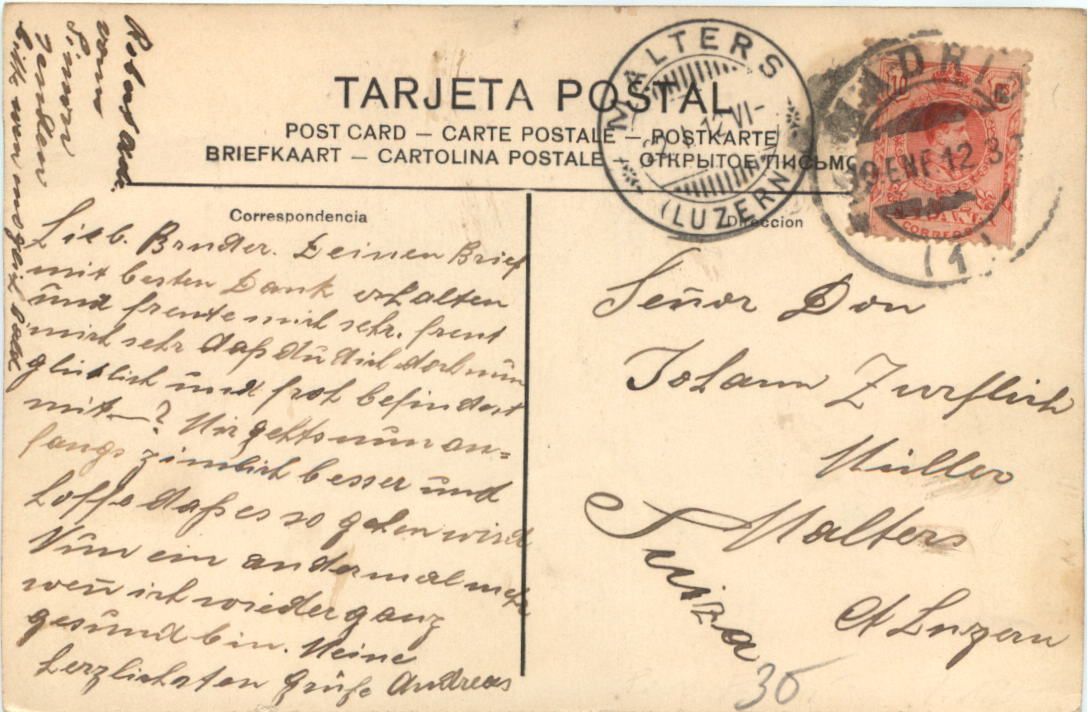 TARJETA POSTAL
POST CARD — CARTE POSTALE — POSTKARTE
BRIEFKAART — CARTOLINA POSTALE — ОТКРЫТОЕ ПИСЬМО
MALTERS
VI
(LUZERN)
MADRID
19 ENE 12
(1)
CORREOS
10
Correspondencia
Direccion
Lieb. Bruder. Deinen Brief
mit besten Dank erhalten
und freute mich sehr. freut
mich sehr daß du dich doch nun
glücklich und froh befindest
mit —? Mir gehts nun an=
fangs zimlich besser und
hoffe daß es so gehen wird
Nun ein andermal mehr
wen̄ ich wieder ganz
gesund bin. Meine
herzlichsten Grüße Andreas
vom
Simon
senden
bitte wen möglich bald
Señor Don
Johann Zurflüh
Müller
Malters
Ct Luzern
Suiza